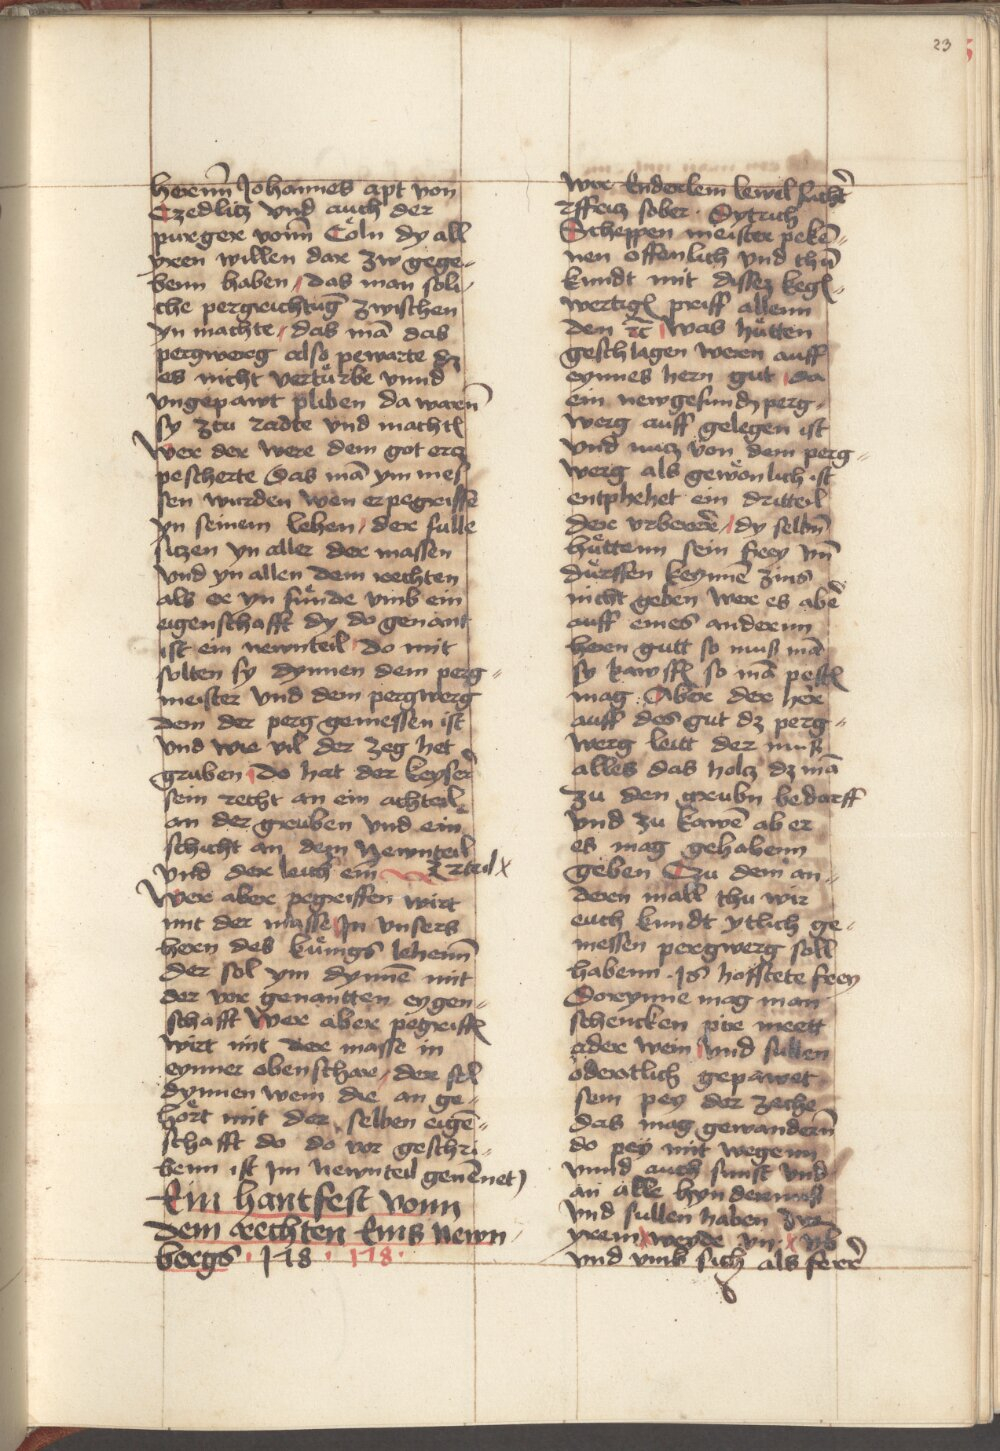 23
herenn Johannes apt von
Czedlitz vnd auch der
purger vonn Cöln dy all
yren willen dar zw gege-
benn haben / das man soli-
che pergreichtũg zwischen
yn machte / das mã das
pergwerg also pewarte dz
es nicht vertürbe vnnd
vngepawt pliben da warenn
sy ztu radte vnd machtẽ
Wer der were dem got ercz
pescherte das mã ym mes
sen wurden wen er pegriffẽ
yn seinem lehen / der sulle
sitzen yn aller der massen
vnd yn allen dem rechten
als er yn fünde vmb ein
eigenschafft dy do genant
ist ein newnteil do mit
solten sy dynnen dem perg-
meister vnd dem pergwerg
dem der perg gemessen ist
vnd wie vil der zeg het
gruben Do hat der keyser
sein recht an ein achteil
an der gruben vnd ein
schicht an dem Newnteil
vnd der leich ein
Wer aber pegreiffen wirt
mit der masse Jn vnsers
hern des künigs lehenn
der sol ym dynnẽ mit
der vor genantten eygen-
schafft Wer aber pegreiffẽ
wirt mit der masse in
eynner obenschare / der sol
dynnen wem die an ge-
hört mit der selben eigẽ-
schafft do do vor geschri-
benn ist Jm Newnteil genẽnet
Ein hantfest vonn
dem rechten Eins newn
bergs · 118 · 118 ·
Wir Enderlein lewil sucht
sober · Dytrich
Scheppen meister pekẽ-
nen offenlich vnd thũ
kundt mit disse kegẽ-
wertigẽ priff allenn
den Was hütten
geschlagen weren auff
eynnes hern gut da
ein newgefundẽ perg-
werg auff gelegen ist
vnd nucz von dem perg-
werg als gewönlich ist
entphehet ein dritteil
der vrberẽ / dy selbñ
hüttenn sein frey vñ
dürffen keynne zins
nicht geben wer es aber
auff eines anderenn
heren gutt so muß mã
sy kawffẽ so mã pestẽ
mag · Aber der here
auff des gut dz perg-
werg leitt der muß
alles das holcz dz mã
zu den grubn bedarff
vnd zu kawẽ ab er
es mag gehabenn
geben Czu dem an-
deren mall thu wir
euch kundt ytlich ge-
messen pergwerg soll
habenn · 18 hoffstete frey
Dorynne mag man
schencken pir mett
oder wein vnd sullen
öderatlich gepawet
sein pey der zeche
das mag gewandernn
do pey mit wegenn
vnnd auch sunst vnd
an alle hyndernus
vnd sullen haben
yrenn weyde vñ
vnd vmb sich als ferr